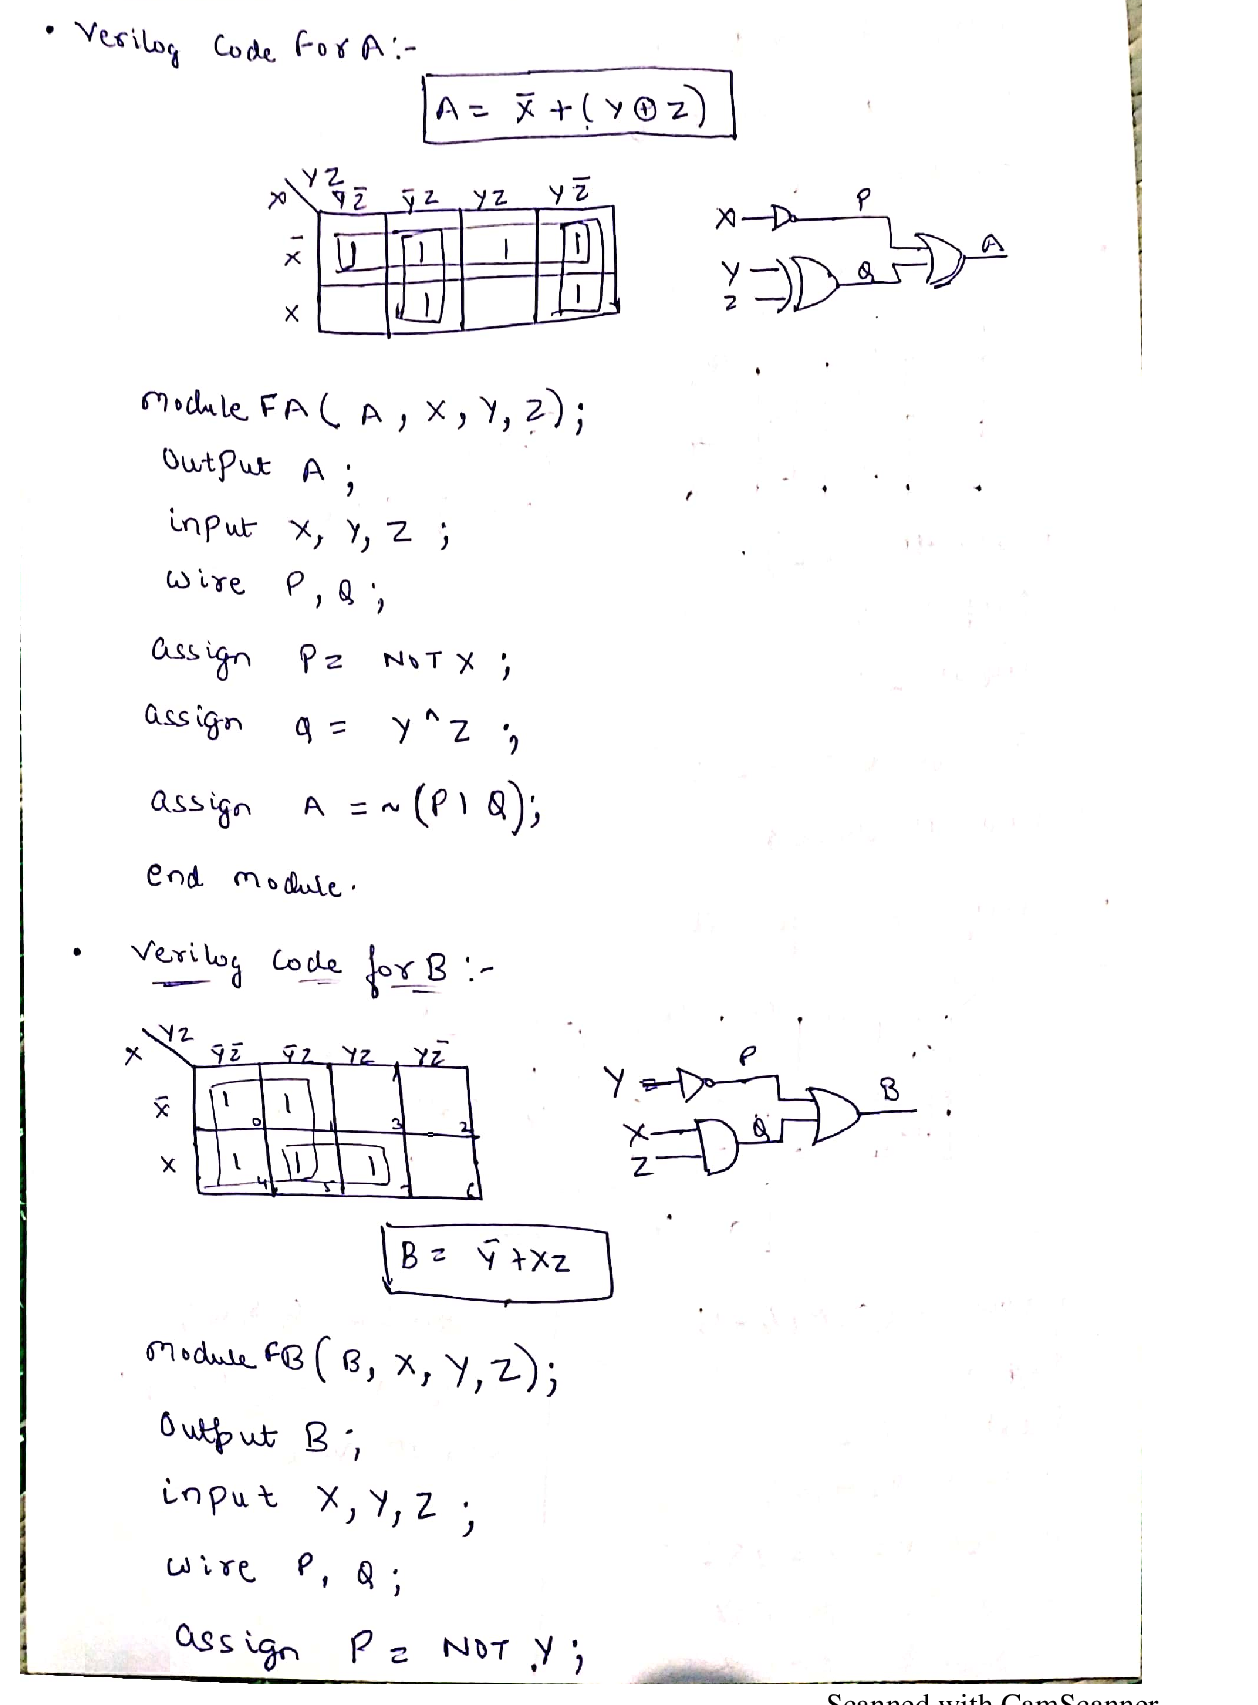 • Verilog Code For A:-
A = X̄ + (Y ⊕ Z)
X YZ ȲZ̄ ȲZ YZ YZ̄
X̄ 1 1 1 1
X 1 1
X P
Y Q A
Z
Module FA( A, X, Y, Z);
Output A;
input X, Y, Z ;
Wire P, Q;
assign P= NOT X ;
assign q = Y^Z ;
assign A = ~(P|Q);
end module.
• Verilog Code for B :-
X YZ ȲZ̄ ȲZ YZ YZ̄
X̄ 1 0 1 1 3 2
X 1 4 1 5 1 7 6
Y P
X Q B
Z
B = Ȳ+XZ
Module FB( B, X, Y, Z);
Output B;
input X, Y, Z ;
Wire P, Q;
assign P = NOT Y;
Scanned with CamScanner